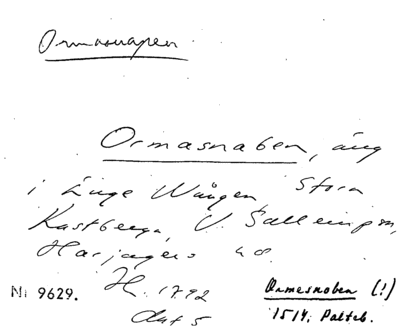 Ormasnapen
Ormasnaben, äng
i Änge Wången, Stora
Kastberga, V. Sallerups sn,
Harjagers hd.
H. 1792
Akt 5
Nr 9629.
Ormesnaben (!)
1514; Palteb.